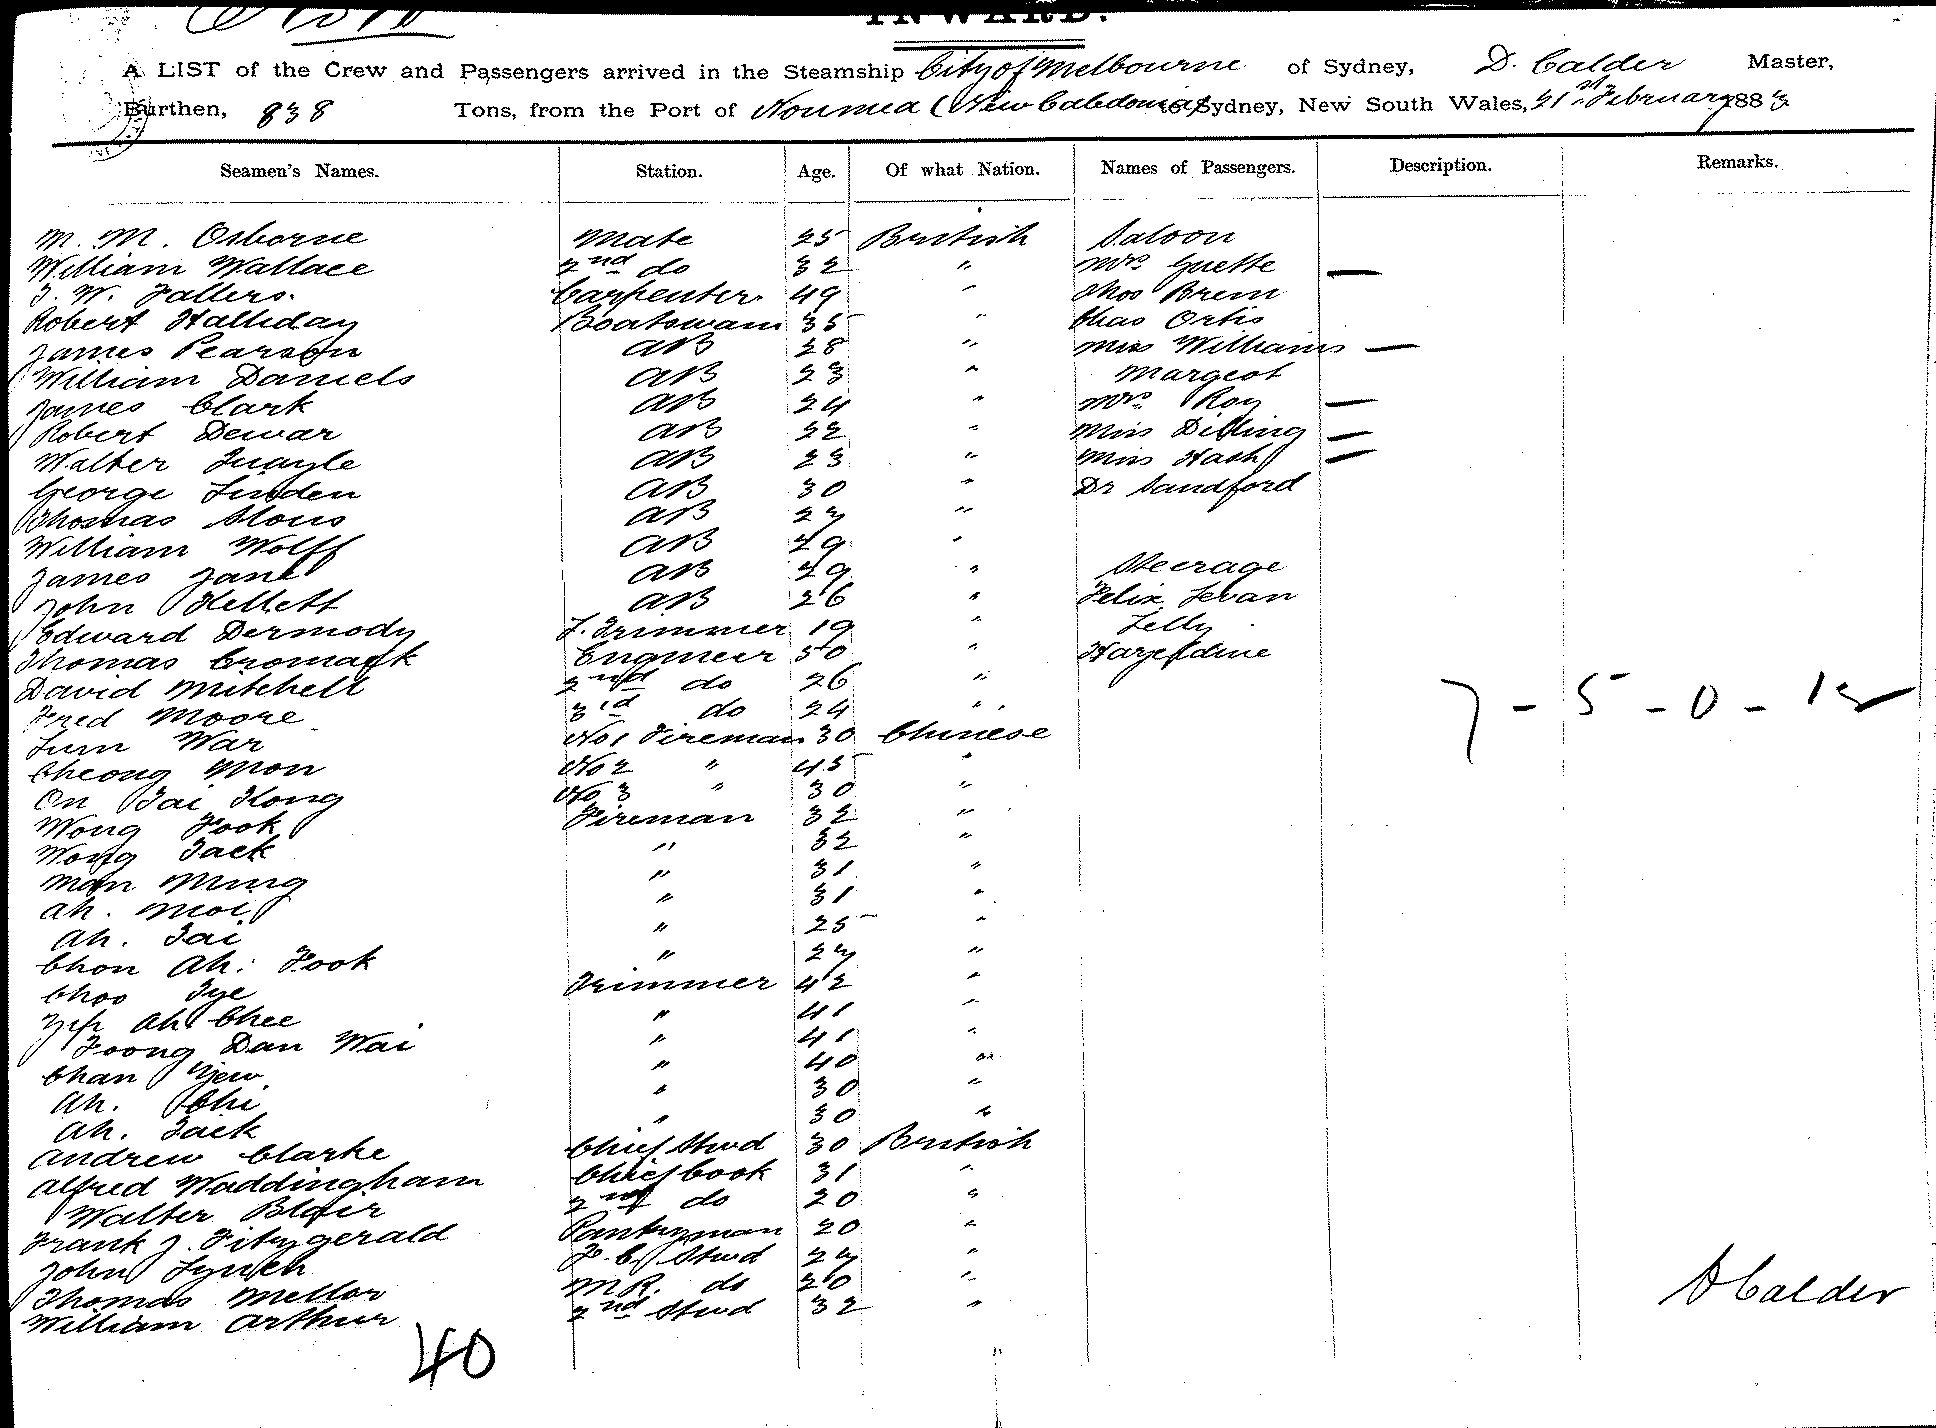 INWARD.
A LIST of the Crew and Passengers arrived in the Steamship City of Melbourne of Sydney, D. Calder Master,
Burthen, 838 Tons, from the Port of Noumea (New Caledonia) to Sydney, New South Wales, 21st February 1883
Seamen's Names. Station. Age. Of what Nation. Names of Passengers. Description. Remarks.
M. M. Osborne Mate 25 British Saloon
William Wallace 2nd do 32 " Mrs Guette —
J. W. Fallers. Carpenter 49 " Thos Brem
Robert Halliday Boatswain 35 " Chas Ortis
James Pearson AB 28 " Miss Williams —
William Daniels AB 23 " Margeot
James Clark AB 24 " Mrs Roy —
Robert Dewar AB 22 " Miss Dilling —
Walter Quayle AB 23 " Miss Nash —
George Linden AB 30 " Dr Sandford
Thomas AB 27 "
William Wolff AB 49 "
James Jane AB 29 " Steerage
John Kellett AB 26 " Felix Levan
Edward Dermody F. Trimmer 19 " Lelly
Thomas Cromack Engineer 50 "
David Mitchell 2nd do 26 "
Fred Moore 3rd do 24 " 7 - 5 - 0 - 12
Lum War No 1 Fireman 30 Chinese
Cheong Mon No 2 " 45 "
On Tai Kong No 3 " 30 "
Wong Fook Fireman 32 "
Wong Jack " 32 "
Man Ming " 31 "
Ah. Moi " 31 "
Ah. Tai " 25 "
Chon Ah. Fook " 27 "
Choo Tye Trimmer 42 "
Yep Ah Chee " 41 "
Foong Dan Wai " 41 "
Chan Yew " 40 "
Ah. Chi " 30 "
Ah. Jack " 30 "
Andrew Clarke Chief Stwd 30 British
Alfred Waddingham Chief Cook 31 "
Walter Blair 2nd do 20 "
Frank J. Fitzgerald Pantryman 20 "
John Lynch F. C. Stwd 27 "
Thomas Mellor M.R. do 20 "
William Arthur 2nd Stwd 32 "
D Calder
40